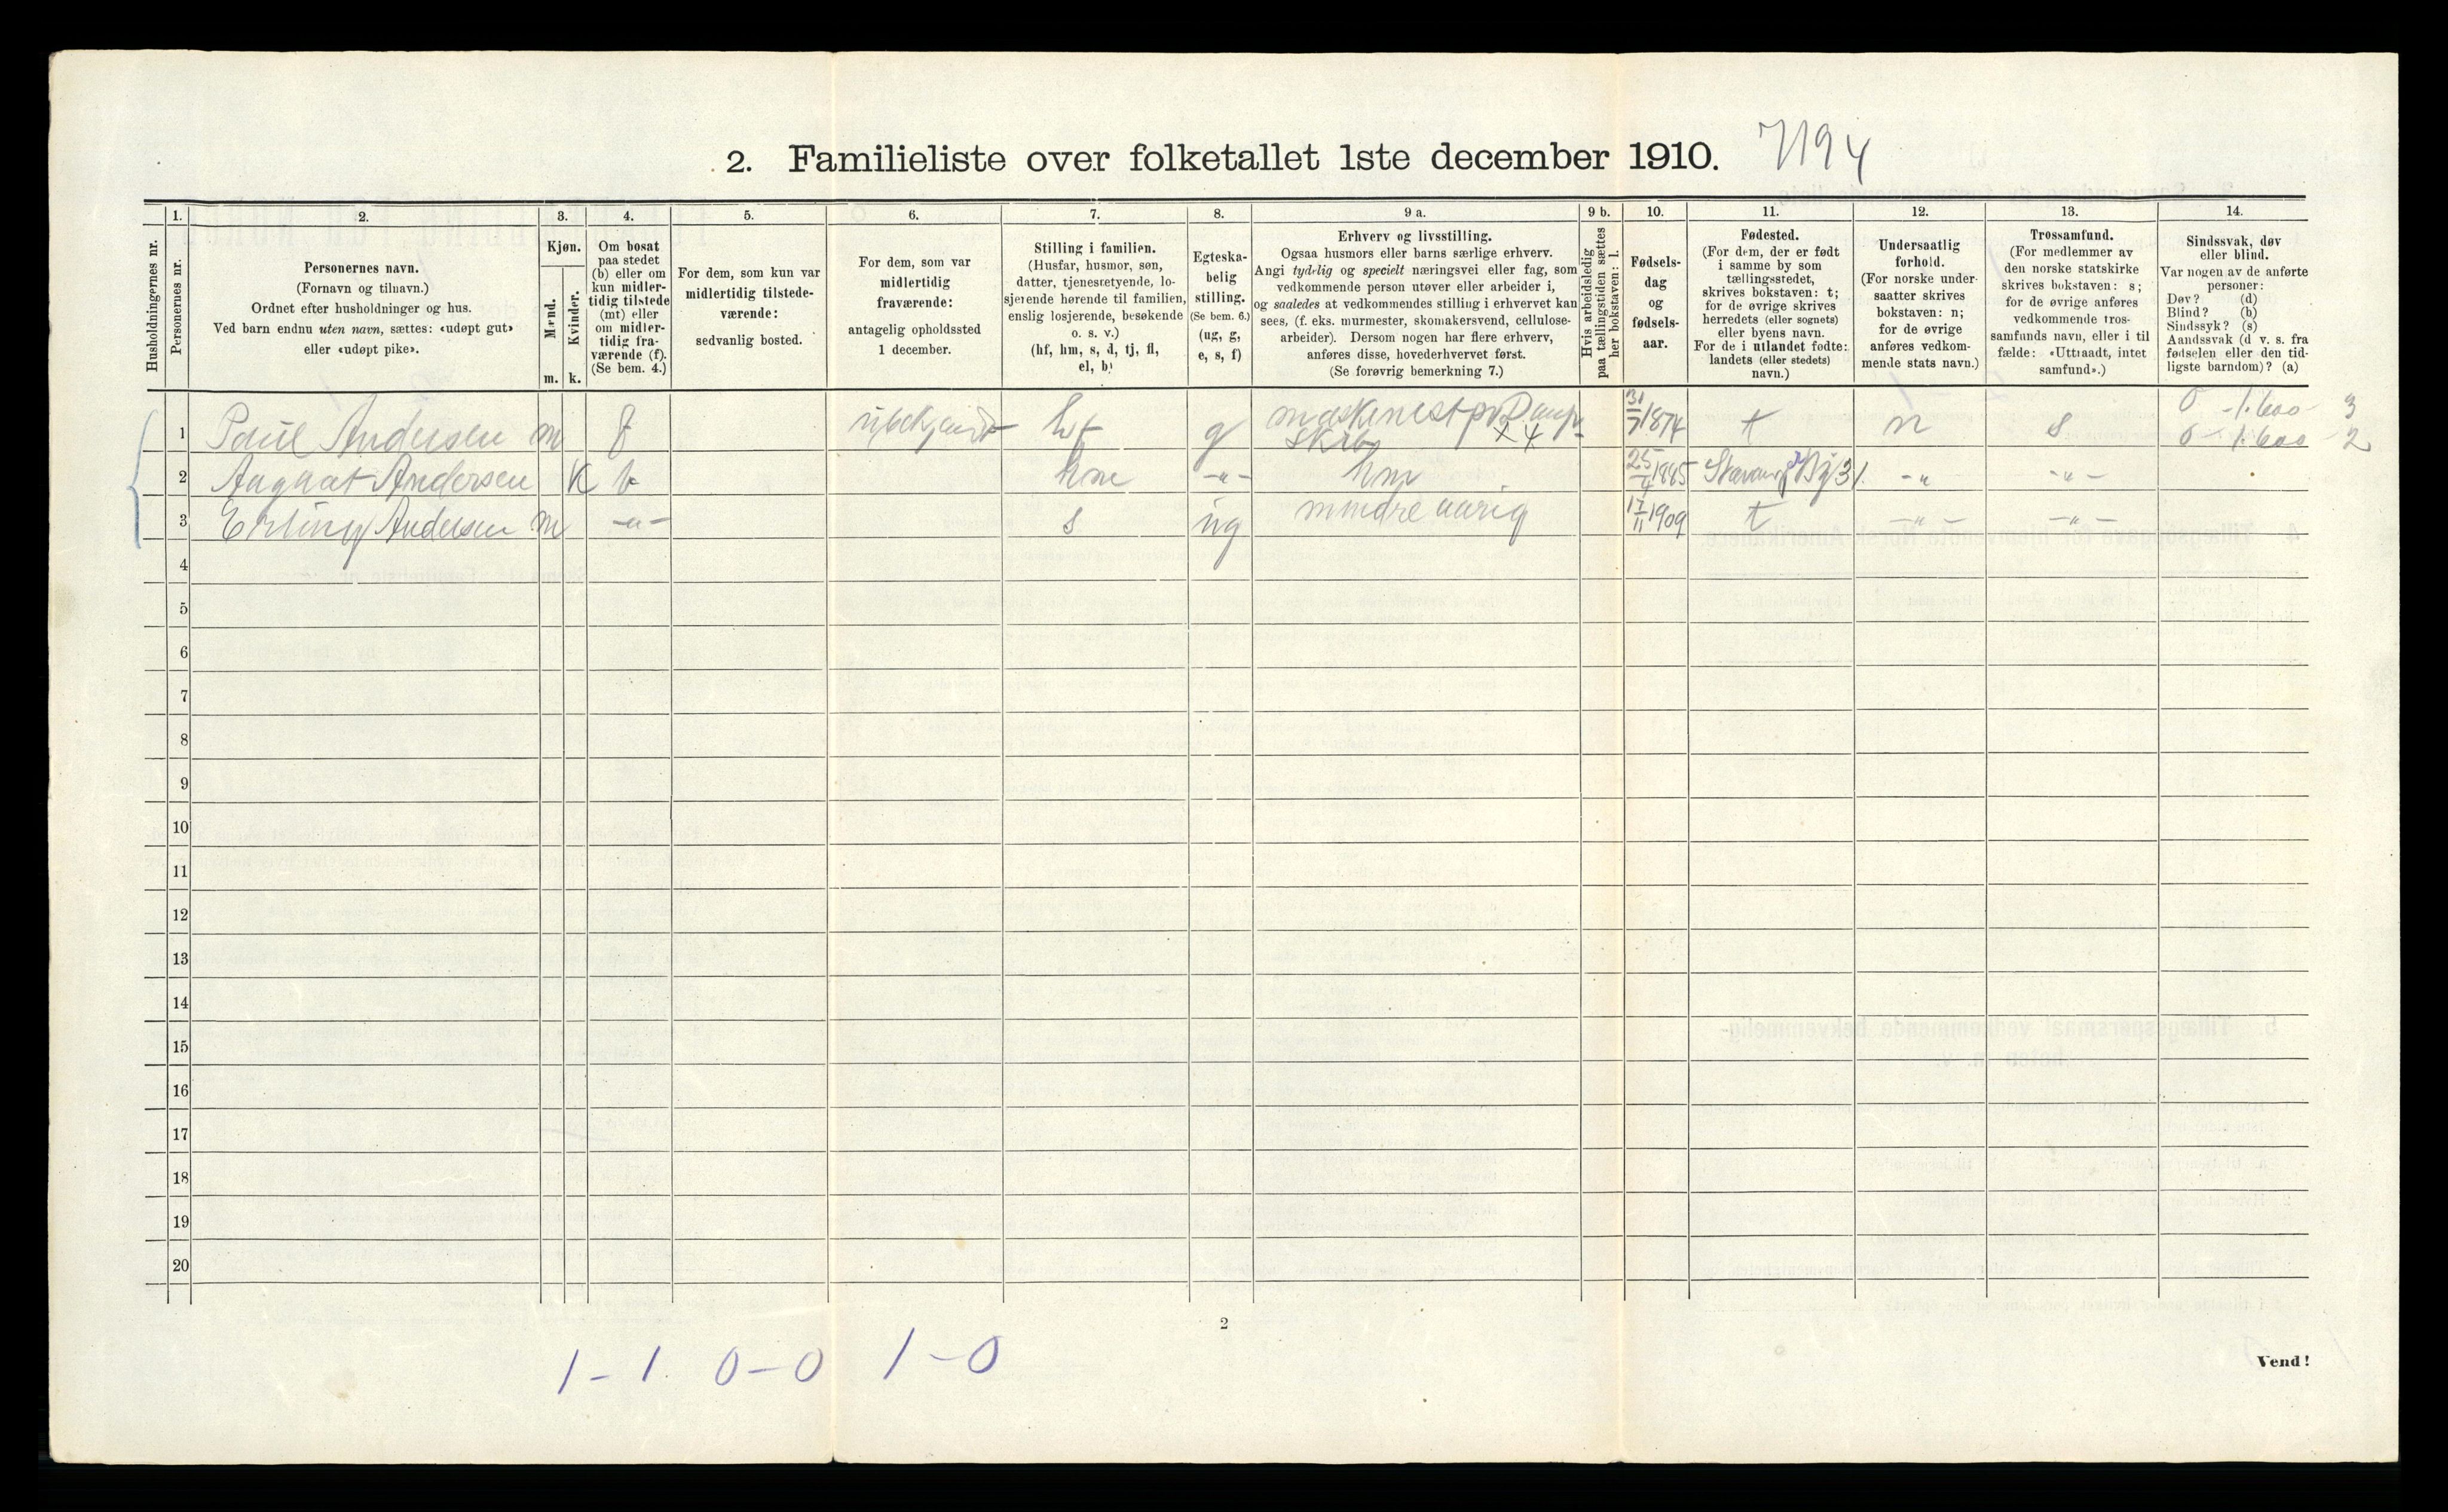 2. Familieliste over folketallet 1ste december 1910. 7194
1. 2. 3. 4. 5. 6. 7. 8. 9 a. 9 b. 10. 11. 12. 13. 14.
Husholdningernes nr.
Personernes nr.
Personernes navn.
(Fornavn og tilnavn.)
Ordnet efter husholdninger og hus.
Ved barn endnu uten navn, sættes: «udøpt gut»
eller «udøpt pike».
Kjøn.
Mænd.
Kvinder.
m. k.
Om bosat
paa stedet
(b) eller om
kun midler-
tidig tilstede
(mt) eller
om midler-
tidig fra-
værende (f).
(Se bem. 4.)
For dem, som kun var
midlertidig tilstede-
værende:
sedvanlig bosted.
For dem, som var
midlertidig
fraværende:
antagelig opholdssted
1 december.
Stilling i familien.
(Husfar, husmor, søn,
datter, tjenestetyende, lo-
sjerende hørende til familien,
enslig losjerende, besøkende
o. s. v.)
(hf, hm, s, d, tj, fl,
el, b)
Egteska-
belig
stilling.
(Se bem. 6.)
(ug, g,
e, s, f)
Erhverv og livsstilling.
Ogsaa husmors eller barns særlige erhverv.
Angi tydelig og specielt næringsvei eller fag, som
vedkommende person utøver eller arbeider i,
og saaledes at vedkommendes stilling i erhvervet kan
sees, (f. eks. murmester, skomakersvend, cellulose-
arbeider). Dersom nogen har flere erhverv,
anføres disse, hovederhvervet først.
(Se forøvrig bemerkning 7.)
Hvis arbeidsledig
paa tællingstiden sættes
her bokstaven: l.
Fødsels-
dag
og
fødsels-
aar.
Fødested.
(For dem, der er født
i samme by som
tællingsstedet,
skrives bokstaven: t;
for de øvrige skrives
herredets (eller sognets)
eller byens navn.
For de i utlandet fødte:
landets (eller stedets)
navn.)
Undersaatlig
forhold.
(For norske under-
saatter skrives
bokstaven: n;
for de øvrige
anføres vedkom-
mende stats navn.)
Trossamfund.
(For medlemmer av
den norske statskirke
skrives bokstaven: s;
for de øvrige anføres
vedkommende tros-
samfunds navn, eller i til
fælde: «Uttraadt, intet
samfund».)
Sindssvak, døv
eller blind.
Var nogen av de anførte
personer:
Døv? (d)
Blind? (b)
Sindssyk? (s)
Aandssvak (d v. s. fra
fødselen eller den tid-
ligste barndom)? (a)
0 - 1.600 - 3
1 Paul Andersen m f ubekjendt hf g maskinest på Damp- 31/7 1874 t n s 0 - 1.600 - 2
skib x 4
2 Aagaat Andersen K b hm -"- hm 25/4 1885 Stavanger By 31. -"- -"-
3 Erling Andersen m -"- s ug mindreaarig 17/11 1909 t -"- -"-
4
5
6
7
8
9
10
11
12
13
14
15
16
17
18
19
20
2
1 - 1. 0 - 0 1 - 0
Vend!